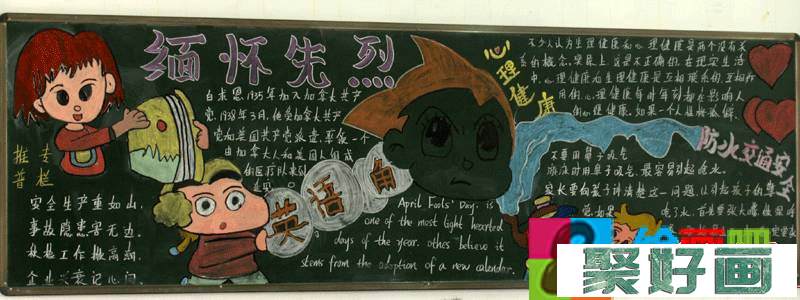 缅怀先烈
白求恩1935年加入加拿大共产
党,1938年3月,他受加拿大共产
党和美国共产党派遣,率领一个
由加拿大人和美国人组成
的医疗队来到
英语角
April Fools' Day is
one of the most light hearted
days of the year. others believe it
stems from the adoption of a new calendar.
推普专栏
安全生产重如山,
事故隐患害无边.
扶植工作掀高潮
企业兴衰记心间.
心理健康
不少人认为生理健康和心理健康是两个没有关
系的概念.实际上,这是不正确的.在现实生活
中,心理健康和生理健康是互相联系的,互相作
用的,心理健康每时每刻都在影响人
的生理健康.如果一个人
防水交通安全
不要用鼻子吸气
游泳时用鼻子吸气,最容易
家长要向孩子讲清楚这一问题
聚好画